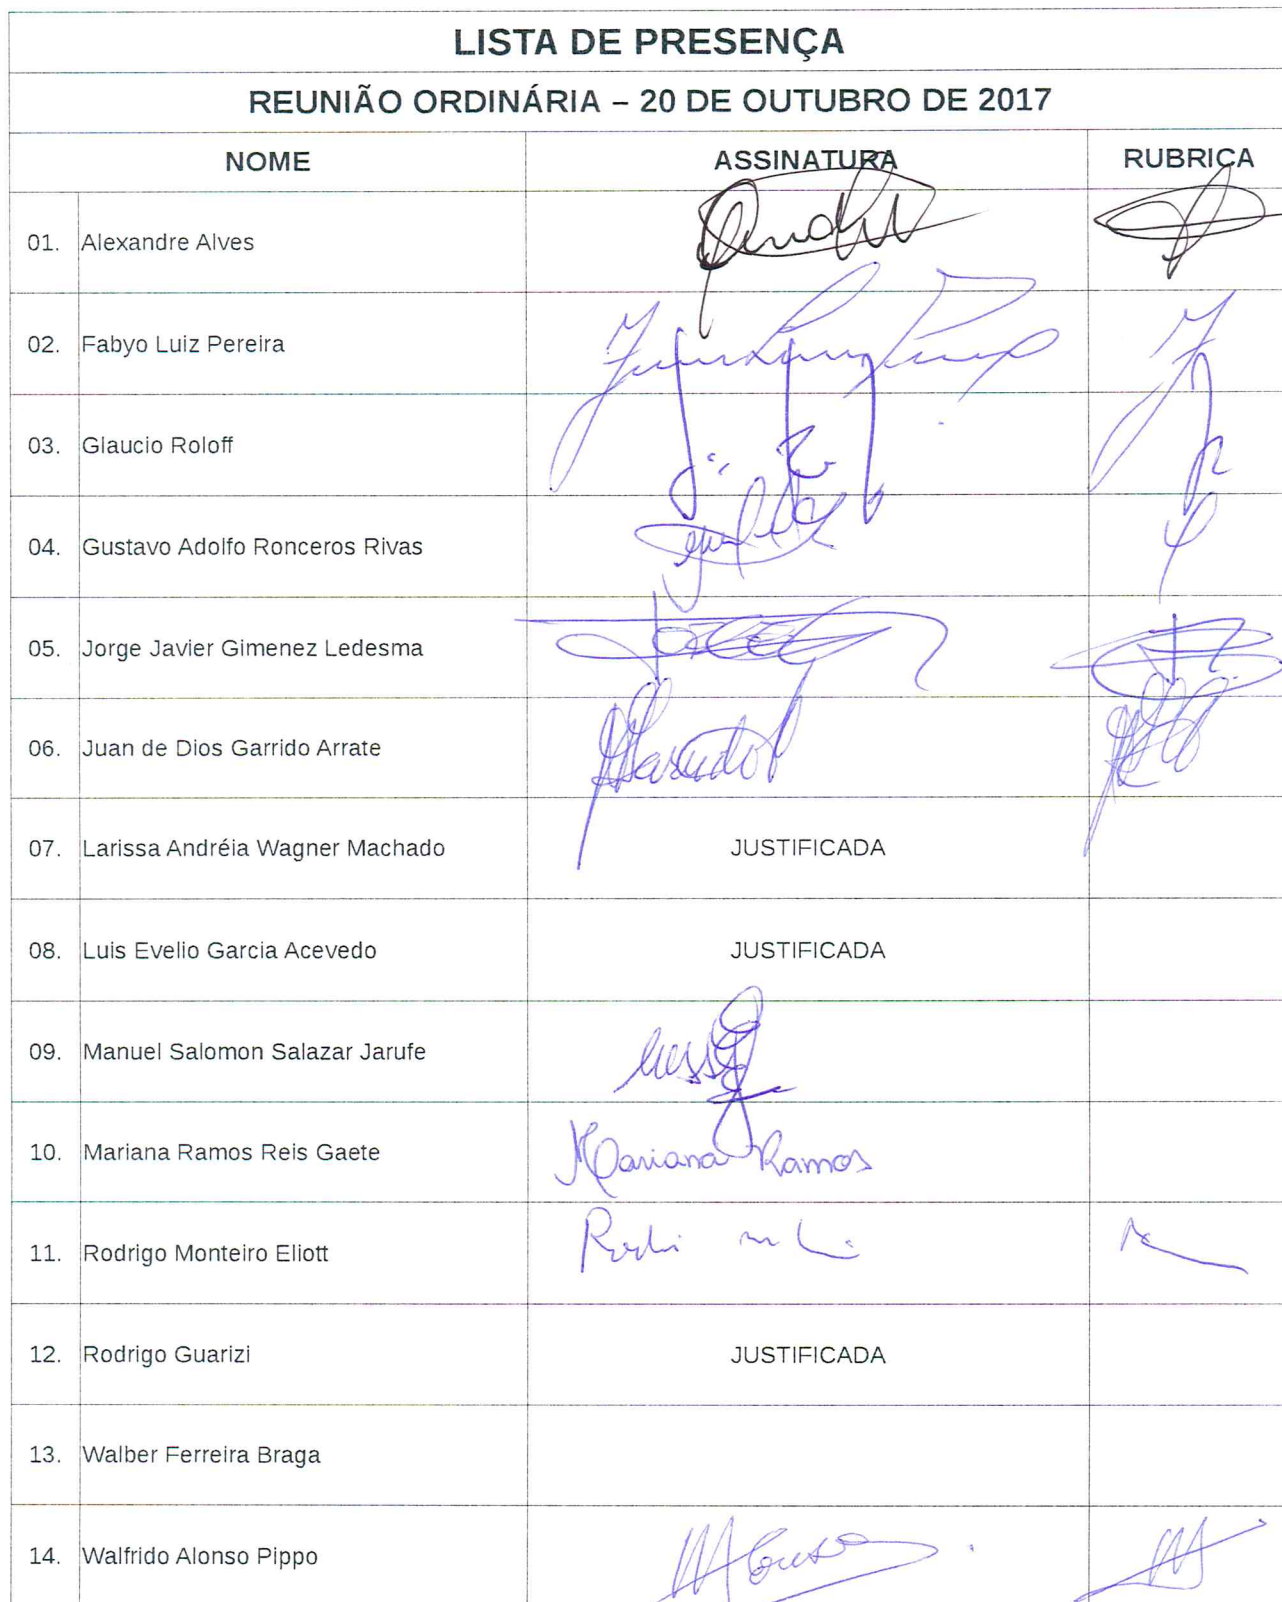 LISTA DE PRESENÇA
REUNIÃO ORDINÁRIA – 20 DE OUTUBRO DE 2017
NOME ASSINATURA RUBRICA
01. Alexandre Alves
02. Fabyo Luiz Pereira
03. Glaucio Roloff
04. Gustavo Adolfo Ronceros Rivas
05. Jorge Javier Gimenez Ledesma
06. Juan de Dios Garrido Arrate
07. Larissa Andréia Wagner Machado JUSTIFICADA
08. Luis Evelio Garcia Acevedo JUSTIFICADA
09. Manuel Salomon Salazar Jarufe
10. Mariana Ramos Reis Gaete Mariana Ramos
11. Rodrigo Monteiro Eliott
12. Rodrigo Guarizi JUSTIFICADA
13. Walber Ferreira Braga
14. Walfrido Alonso Pippo